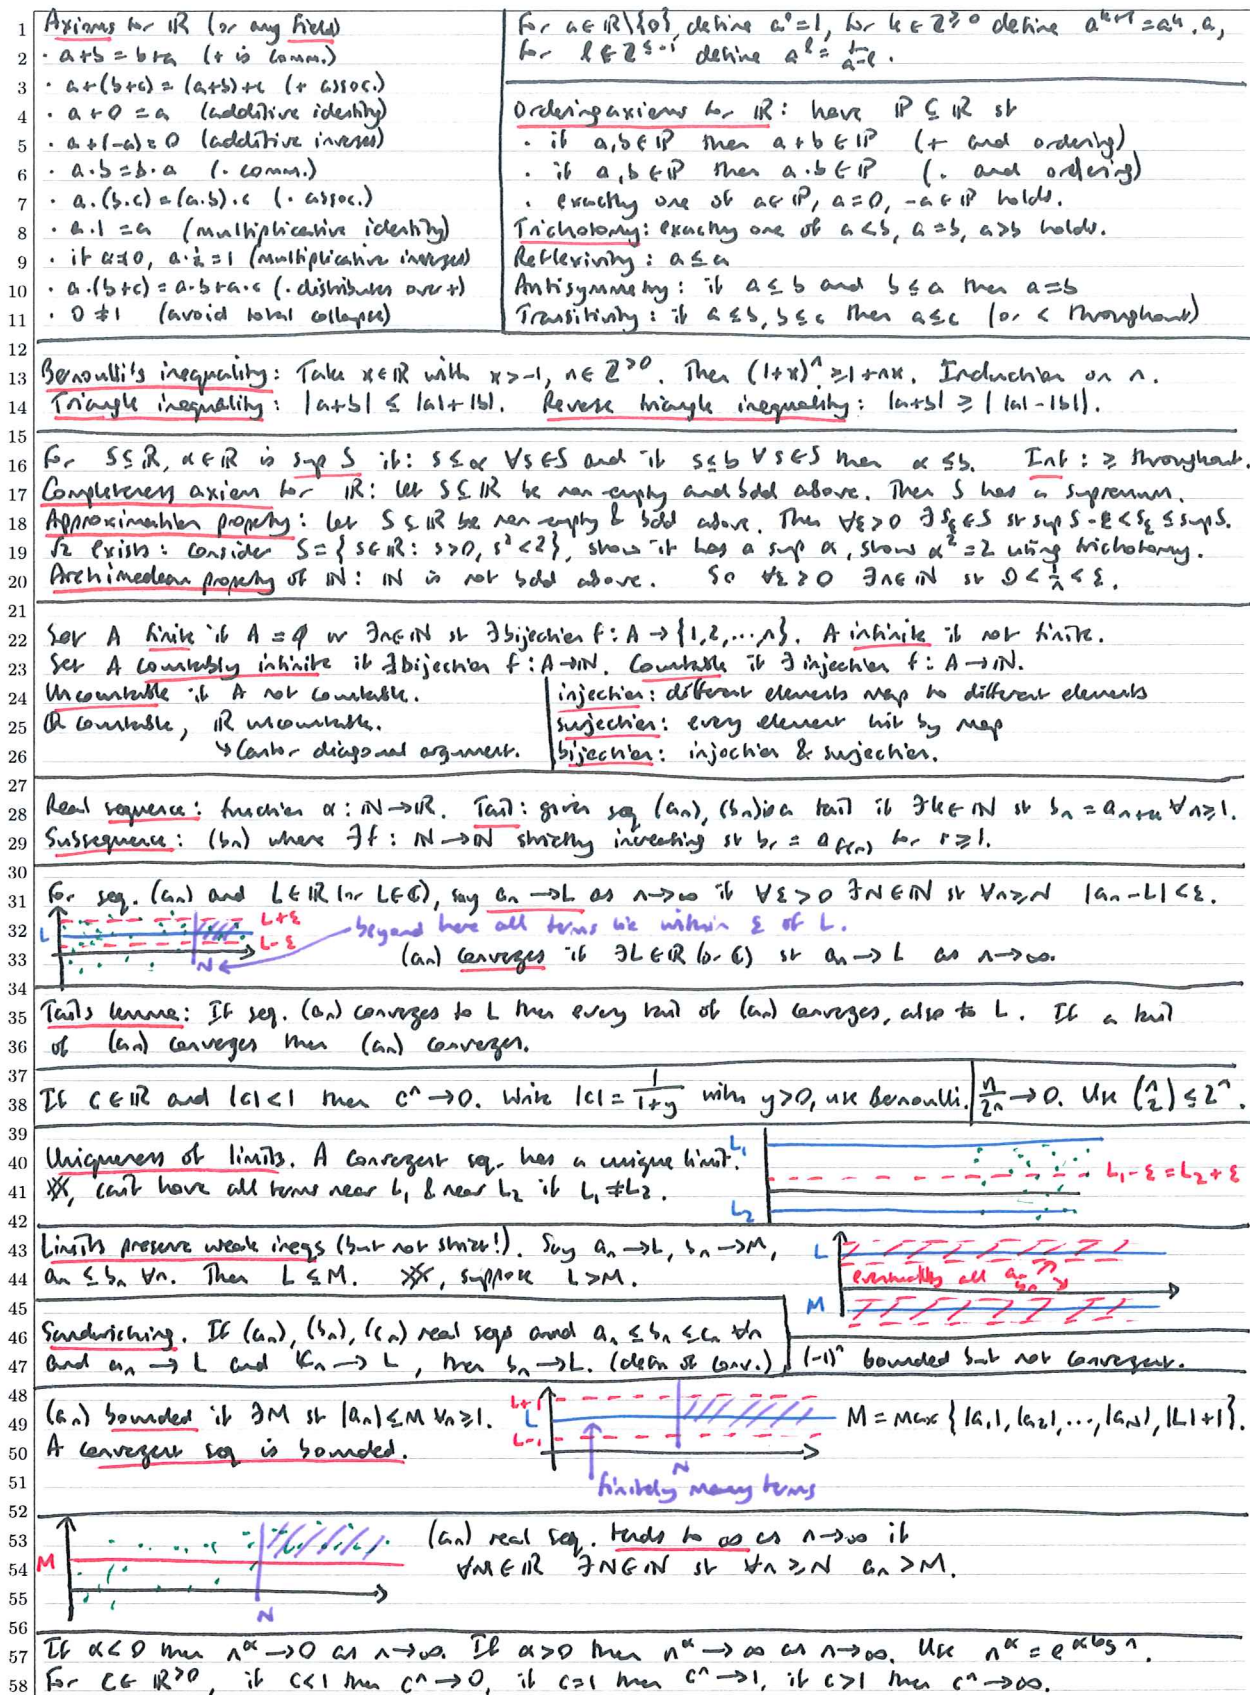 1 Axioms for ℝ (or any field)
2 · a+b = b+a (+ is comm.)
3 · a+(b+c) = (a+b)+c (+ assoc.)
4 · a+0 = a (additive identity)
5 · a+(-a) = 0 (additive inverses)
6 · a.b = b.a (. comm.)
7 · a.(b.c) = (a.b).c (. assoc.)
8 · a.1 = a (multiplicative identity)
9 · if a≠0, a.1/a = 1 (multiplicative inverses)
10 · a.(b+c) = a.b+a.c (. distributes over +)
11 · 0≠1 (avoid total collapse)
For a∈ℝ\{0}, define a⁰=1, for k∈ℤ^≥0 define a^(k+1) = a^k.a,
for l∈ℤ^≤-1 define a^l = 1/a^-l.
Ordering axioms for ℝ: have ℙ ⊆ ℝ st
· if a,b∈ℙ then a+b∈ℙ (+ and ordering)
· if a,b∈ℙ then a.b∈ℙ (. and ordering)
· exactly one of a∈ℙ, a=0, -a∈ℙ holds.
Trichotomy: exactly one of a<b, a=b, a>b holds.
Reflexivity: a≤a
Antisymmetry: if a≤b and b≤a then a=b
Transitivity: if a≤b, b≤c then a≤c (or < throughout)
12
13 Bernoulli's inequality: Take x∈ℝ with x>-1, n∈ℤ^>0. Then (1+x)^n ≥ 1+nx. Induction on n.
14 Triangle inequality: |a+b| ≤ |a|+|b|. Reverse triangle inequality: |a+b| ≥ ||a|-|b||.
15
16 For S⊆ℝ, α∈ℝ is sup S if: s≤α ∀s∈S and if s≤b ∀s∈S then α≤b. Inf: ≥ throughout.
17 Completeness axiom for ℝ: let S⊆ℝ be non-empty and bdd above. Then S has a supremum.
18 Approximation property: Let S⊆ℝ be non-empty & bdd above. Then ∀ε>0 ∃s_ε∈S st sup S-ε < s_ε ≤ sup S.
19 √2 exists: consider S={s∈ℝ: s>0, s²<2}, show it has a sup α, show α²=2 using trichotomy.
20 Archimedean property of ℕ: ℕ is not bdd above. So ∀ε>0 ∃n∈ℕ st 0<1/n<ε.
21
22 Set A finite if A=∅ or ∃n∈ℕ st ∃bijection f: A→{1,2,...,n}. A infinite if not finite.
23 Set A countably infinite if ∃bijection f: A→ℕ. Countable if ∃ injection f: A→ℕ.
24 Uncountable if A not countable.
25 ℚ countable, ℝ uncountable.
26 ↳ Cantor diagonal argument.
injection: different elements map to different elements
surjection: every element hit by map
bijection: injection & surjection.
27
28 Real sequence: function α: ℕ→ℝ. Tail: given seq (an), (bn) is a tail if ∃k∈ℕ st bn = a_n+k ∀n≥1.
29 Subsequence: (bn) where ∃f: ℕ→ℕ strictly increasing st br = a_f(r) for r≥1.
30
31 For seq. (an) and L∈ℝ (or L∈ℂ), say an→L as n→∞ if ∀ε>0 ∃N∈ℕ st ∀n≥N |an-L|<ε.
32 L L+ε L-ε N beyond here all terms lie within ε of L.
33 (an) converges if ∃L∈ℝ (or ℂ) st an→L as n→∞.
34
35 Tails lemma: If seq. (an) converges to L then every tail of (an) converges, also to L. If a tail
36 of (an) converges then (an) converges.
37
38 If c∈ℝ and |c|<1 then c^n→0. Write |c| = 1/(1+y) with y>0, use Bernoulli. n/2^n→0. Use (n 2) ≤ 2^n.
39
40 Uniqueness of limits. A convergent seq. has a unique limit.
41 ※, can't have all terms near L₁ & near L₂ if L₁≠L₂.
42
L₁ L₁-ε = L₂+ε L₂
43 Limits preserve weak ineqs (but not strict!). Say an→L, bn→M,
44 an≤bn ∀n. Then L≤M. ※, suppose L>M.
L eventually all an bn M
45
46 Sandwiching. If (an), (bn), (cn) real seqs and an≤bn≤cn ∀n
47 and an→L and cn→L, then bn→L. (defn of conv.) (-1)^n bounded but not convergent.
48
49 (an) bounded if ∃M st |an|≤M ∀n≥1.
50 A convergent seq is bounded.
51
L+1 L L-1 N finitely many terms
M = max{|a₁|, |a₂|, ..., |aN|, |L|+1}.
52
53 (an) real seq. tends to ∞ as n→∞ if
54 ∀M∈ℝ ∃N∈ℕ st ∀n≥N an>M.
M N
55
56
57 If α<0 then n^α→0 as n→∞. If α>0 then n^α→∞ as n→∞. Use n^α = e^(α log n).
58 For c∈ℝ^>0, if c<1 then c^n→0, if c=1 then c^n→1, if c>1 then c^n→∞.